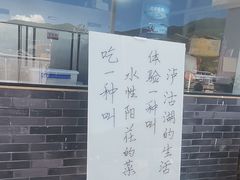 泸沽湖的生活
体验一种叫
水性阳花的菜
吃一种叫